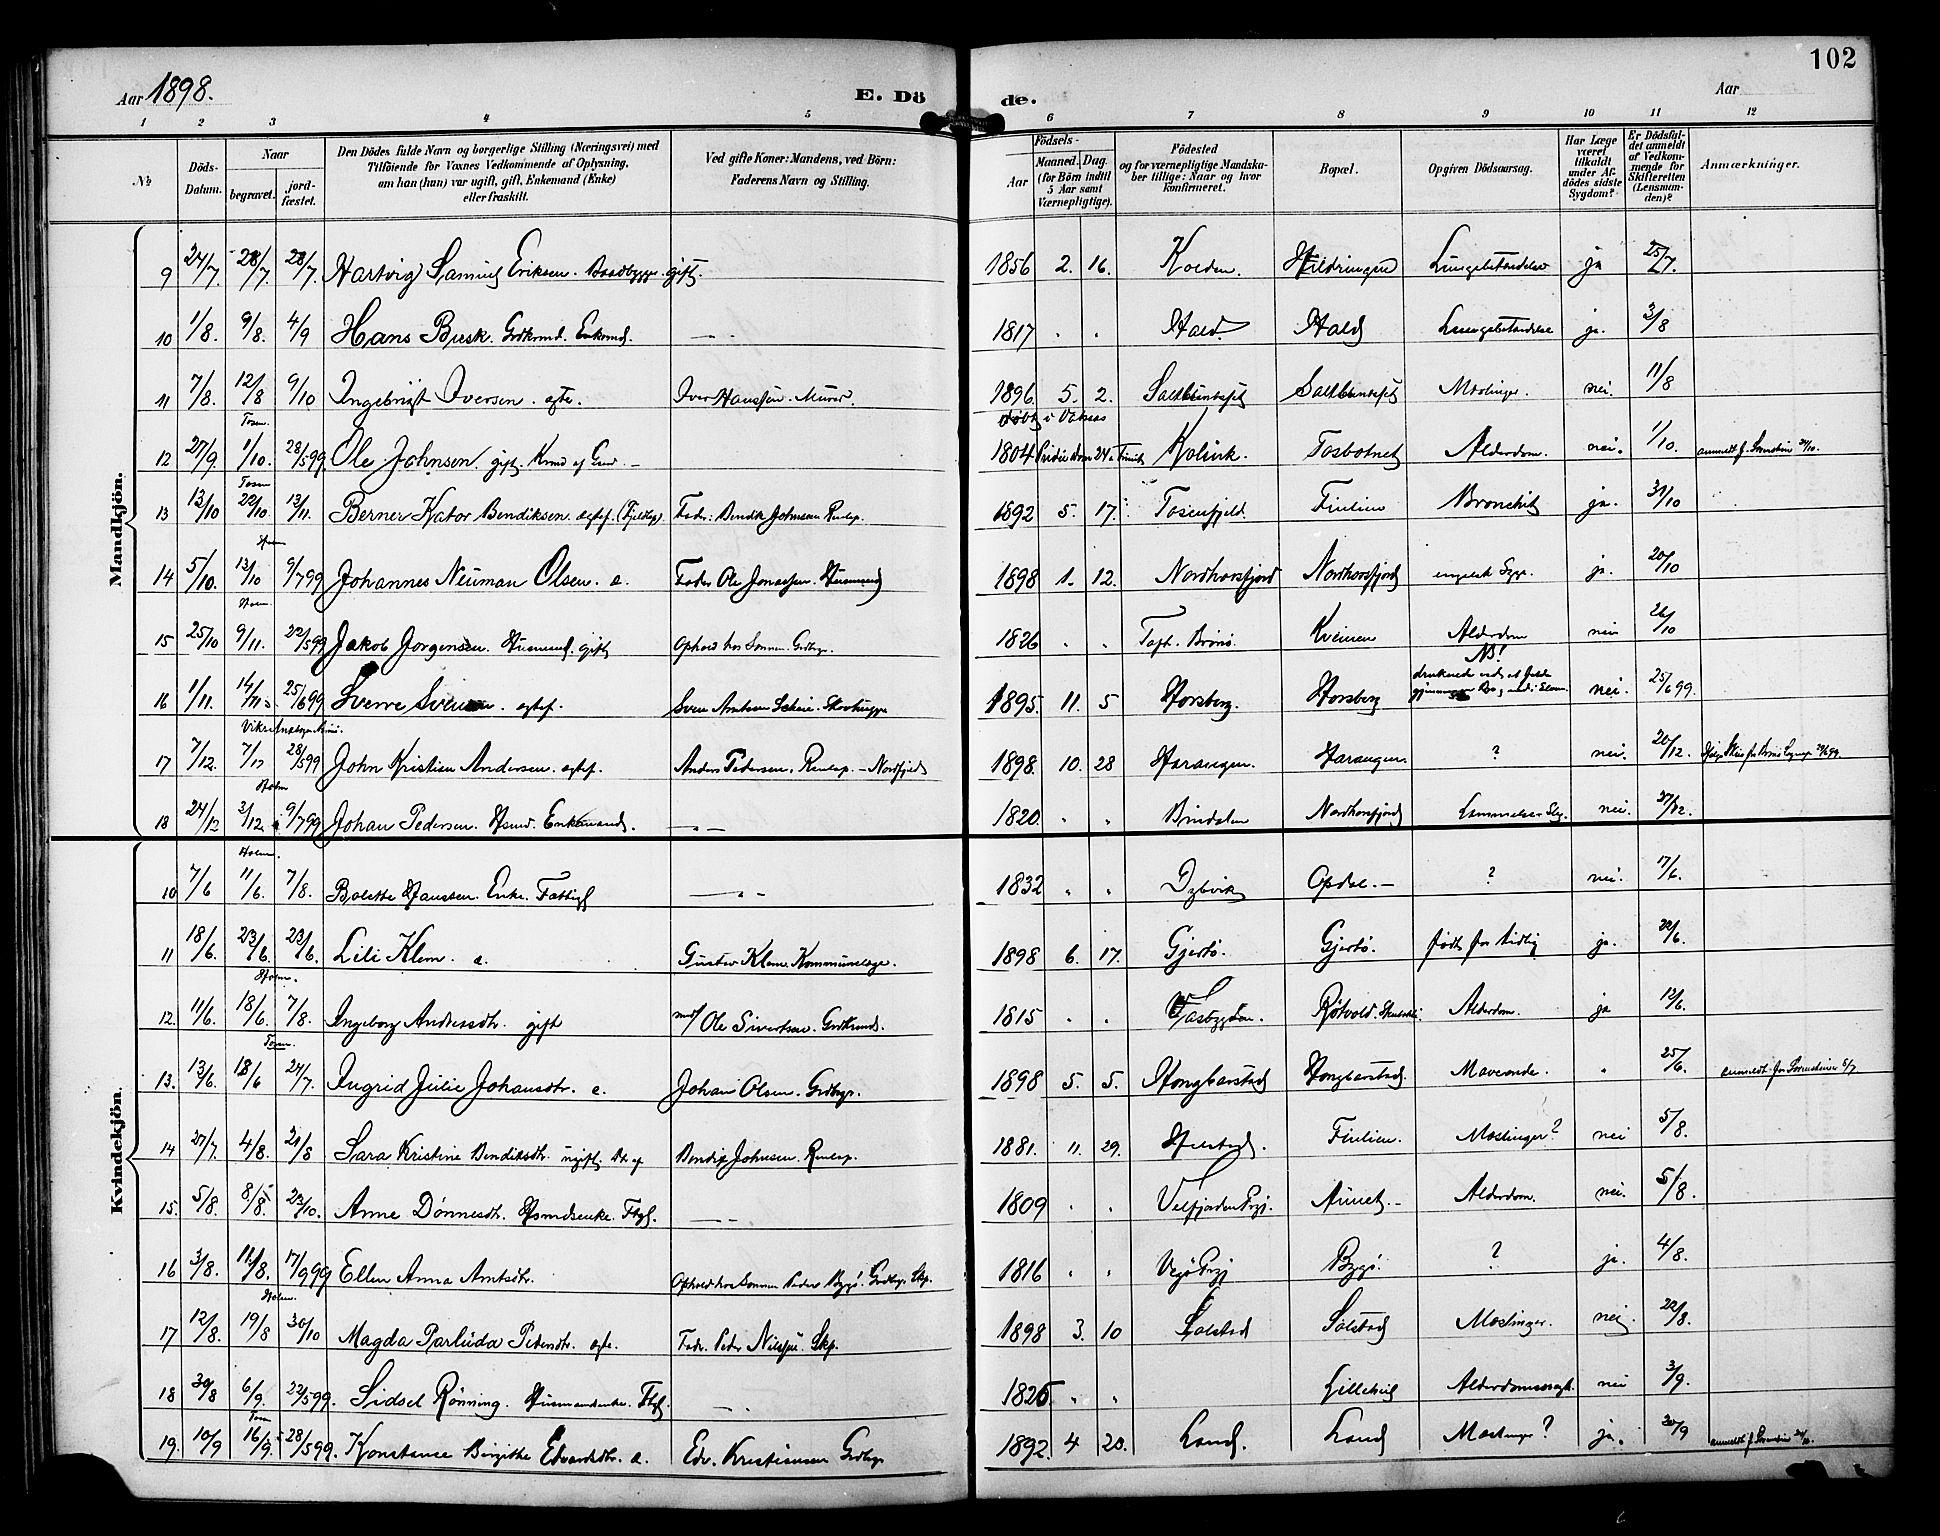 102
Aar 1898. E. Dö de. Aar
1 2 3 4 5 6 7 8 9 10 11 12
№
Döds-Datum.
Naar
begravet.
jordfæstet.
Den Dödes fulde Navn og borgerlige Stilling (Næringsvei) med
Tilföiende for Voxnes Vedkommende af Oplysning,
om han (hun) var ugift, gift, Enkemand (Enke)
eller fraskilt.
Ved gifte Koner: Mandens, ved Börn:
Faderens Navn og Stilling.
Födsels-
Aar
Maaned. Dag.
(for Börn indtil
5 Aar samt
Værnepligtige).
Födested
og for værnepligtige Mandska-
ber tillige: Naar og hvor
konfirmeret.
Bopæl.
Opgiven Dödsaarsag.
Har Læge
været
tilkaldt
under Af-
dödes sidste
Sygdom?
Er Dödsfal-
det anmeldt
af Vedkom-
mende for
Skifteretten
(Lensman-
den)?
Anmærkninger.
Mandkjön.
9 24/7. 28/7. 28/7. Hartvig Samuel Eriksen. Baadbygger. gift. 1856 2. 16. Kolden. Hildringen Lungebetændelse ja 25/7.
10 1/8. 9/8. 4/9 Hans Busk. Grdkmd. Enkemd. — 1817 " " Hald Hald Lungebetændelse ja. 3/8
11 7/8. 12/8 9/10 Ingebrigt Iversen. ægte. Iver Hanssen. Murer. 1896. 5. 2. Mæslinger. nei. 11/8
døbt i
Tosen.
12 27/9. 1/10. 28/5 99 Ole Johnsen gift. 1804 Kolvik. Tosbotnet Alderdom. nei. 1/10.
Tosen
13 13/10 22/10. 13/11. Berner Kator Bendiksen. ægtef. (Fjeldlap) Fader: Bendik Johnsen Renlap. 1892 5. 17. Tosenfjeld. Fiulien Bronchit ja. 31/10
Holm
14 5/10. 13/10 9/7 99 Johannes Neuman Olsen. æ. Fader Ole Jonassen. Husmand 1898 1. 12. Nordhorsfjord Nordhorsfjord engelsk Syge. ja. 20/10
Holm.
15 25/10 9/11. 22/5 99 Jakob Jorgensen. Husmand. gift Ophold hos Sønnen. Grdbrgr. 1826 " " Toft. Brønø. Kveinen Alderdom nei 26/10
NB!
16 1/11. 14/11 25/6 99 Sverre Svensen. ægtef. 1895. 11. 5 Horsberg. Horsberg druknede ved at falde gjennem nei. 25/6 99.
17 7/12. 7/12 28/5 99 John Kristian Andersen. ægtef. Anders Pedersen. Renlap. — Nordfjeld 1898. 10. 28 Harangen. Harangen. ? nei. 20/12.
Holm
18 24/12 3/12 9/7 99 Johan Pedersen. Hsmd. Enkemand. — 1820. " " Bindalen Nordhorsfjord nei.
Kvindekjön.
Holm.
10 7/6 11/6. 7/8. Bolette Hanssen. Enke. Fattigl — 1832 " " Dybvik Opdal. — ? nei. 17/6.
11 18/6. 23/6. 23/6. Lili Klem. æ. Gustav Klem. Kommunelæge. 1898 6. 17. Gjertø. Gjertø. født for tidlig ja. 22/6.
Holm.
12. 11/6. 18/6. 7/8. Ingeborg Andersdtr. gift m/ Ole Sivertsen. Grdkmd. 1815 " " Alderdom. ja 12/6.
Tosen.
13. 13/6. 18/6 24/7. Ingrid Julie Johansdtr. æ. Johan Olsen. Grdbrgr. 1898 5. 5. Hongbarstad Hongbarstad. Maveonde. " 25/6.
14 27/7. 4/8. 21/8 Sara Kristine Bendiksdtr. ugift. Dtr. af Bendix Johnsen. Renlap. 1881. 11. 29. Fiulien. Mæslinger? nei 5/8.
15. 5/8. 8/8. 23/10. Anne Dønnesdtr. Hsmdsenke. Ftgl. — 1809 " " Velfjorden Prgj. Aunet. — Alderdom. nei. 5/8.
16 3/8. 11/8. 17/9 99 Ellen Anna Arntsdtr. Ophold hos Sønnen Peder Bygø. Grdbrgr. Skp. 1816 " " Vegø Prgj Bygø. ? ja. 4/8.
Holm.
17 12/8. 19/8 30/10 Magda Parlida Pedersdtr. ægte. Fadr. Peder Nilssen. Skp. 1898 3. 10 Solstad Solstad Mæslinger. nei. 22/8.
18 30/8 6/9. 22/5 99. Sidsel Rønning. Husmandsenke. Ftgl. — 1825 " " Lilleheil Alderdomssvagh. nei 3/9.
Tosen
19. 10/9 16/9. 28/5 99. Konstanse Birgithe Edvardsdtr. æ. Edv. Kristiansen Grdbrgr 1892. 4 20. Lande. Lande Mæslinger? ja. 20/9